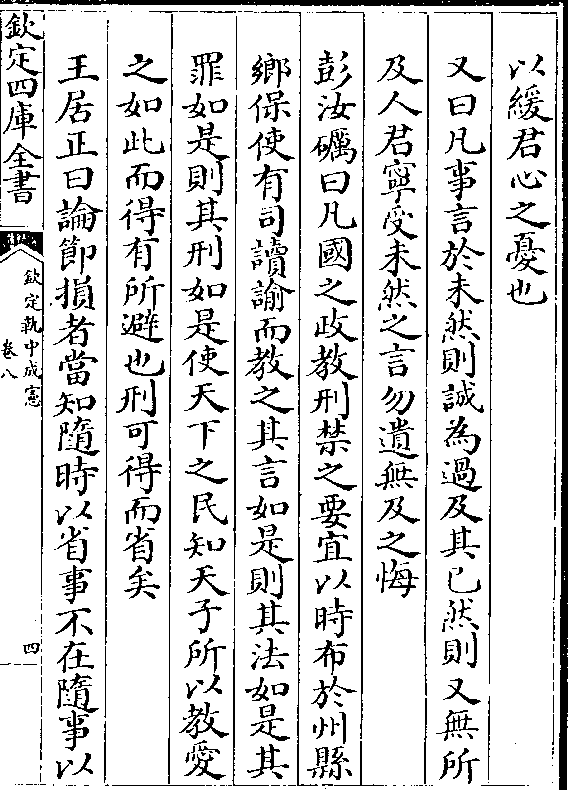 以緩君心之憂也
又曰凡事言於未然則誠為過及其已然則又無所
及人君寧受未然之言勿遺無及之悔
彭汝礪曰凡國之政教刑禁之要宜以時布於州縣
鄉保使有司讀諭而教之其言如是則其法如是其
罪如是則其刑如是使天下之民知天子所以教愛
之如此而得有所避也刑可得而省矣
王居正曰論節損者當知隨時以省事不在隨事以
欽定四庫全書
欽定執中成憲
卷八
四